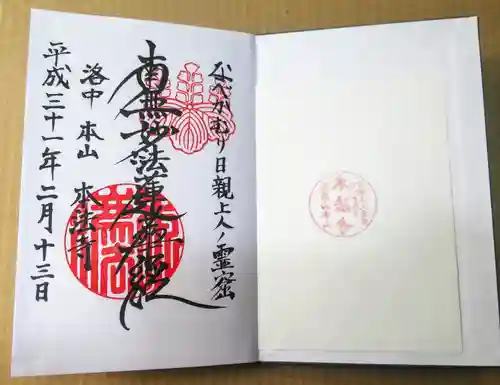 なべかむり日親上人ノ霊窟
南無妙法蓮華経
洛中 本山 本法寺
平成三十一年二月十三日